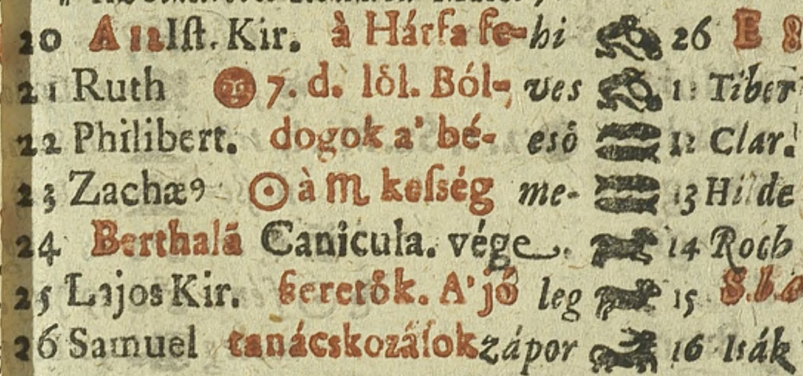 20 A 12 Iſt. Kir. à Hárfa ſe- hi 26 E 8
21 Ruth 7. d. lől. Ból- ves 11 Tiber
22 Philibert. dogok a' bé- eső 12 Clar.
23 Zachæ⁹ ☉ à ♍ keſség me- 13 Hilde
24 Berthalā Canicula. vége. 14 Roch
25 Lajos Kir. ſeretők. A' jó leg 15
26 Samuel tanácskozáſok zápor 16 Isák